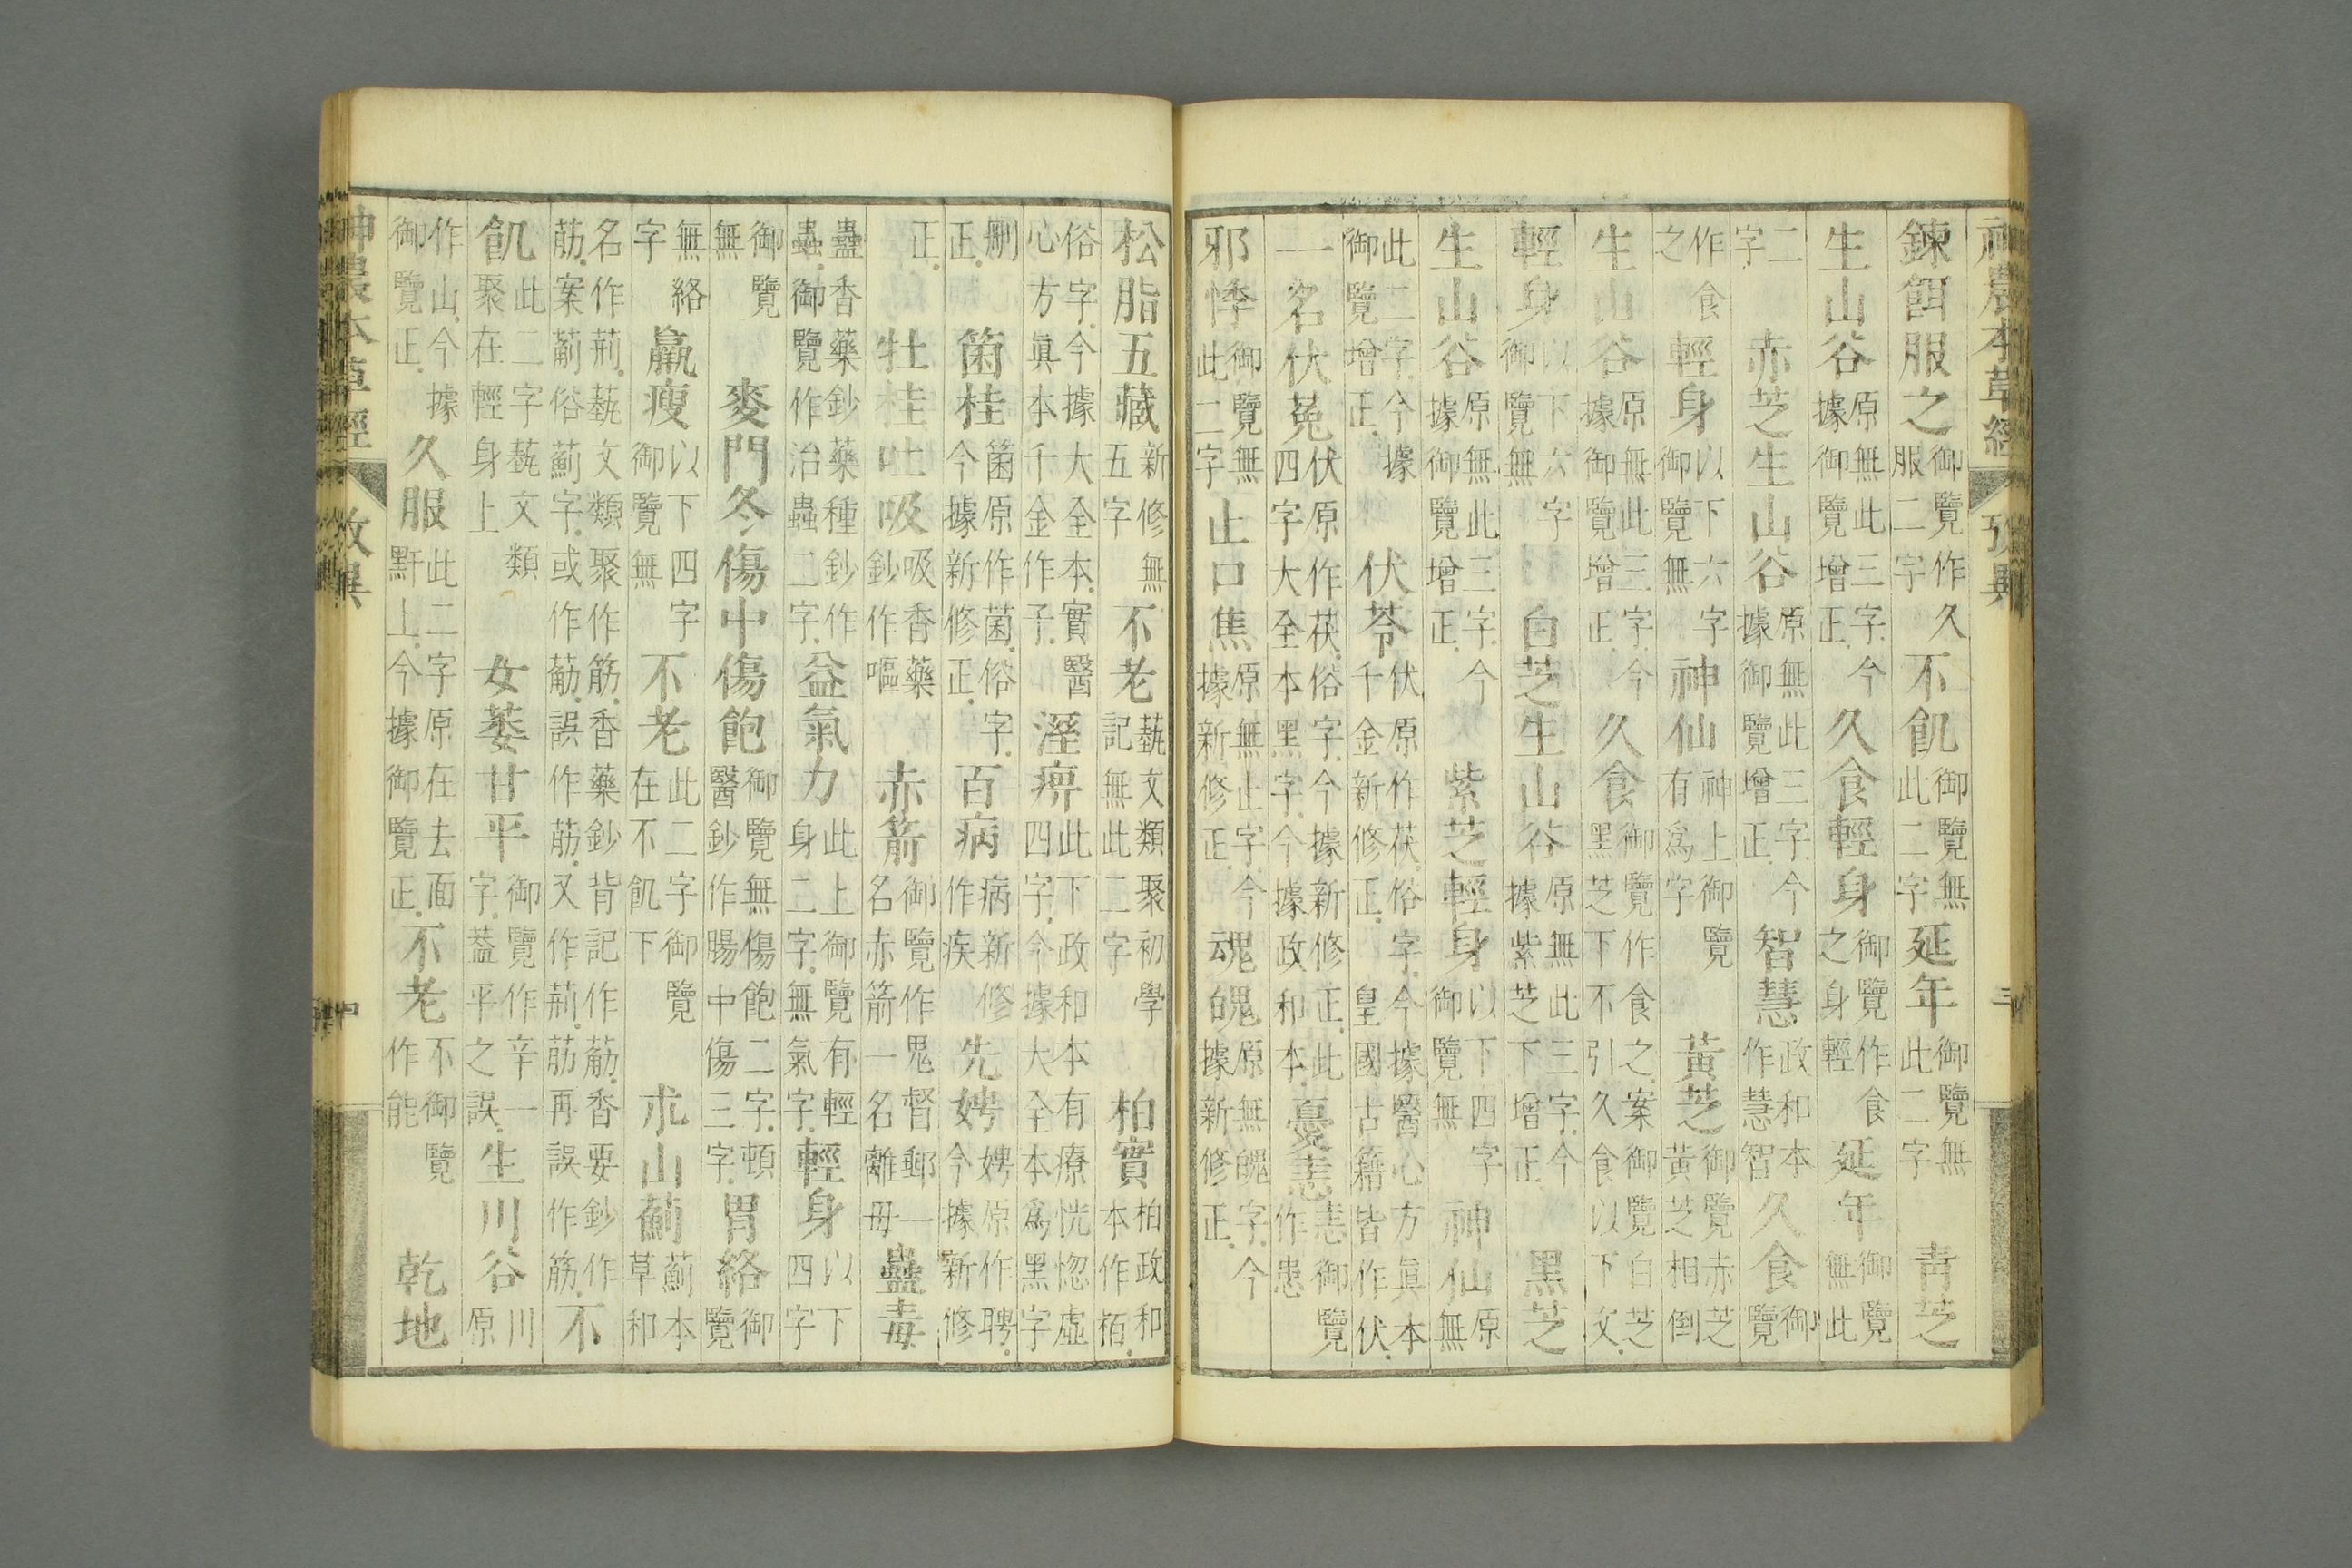 神農本草經 攷異 三
鍊餌服之御覽作久服二字不飢御覽無此二字延年御覽無此二字 青芝
生山谷原無此三字今據御覽增正久食輕身御覽作食之身輕延年御覽無此
二字 赤芝生山谷原無此三字今據御覽增正智慧政和本作慧智久食御覽
作食之輕身以下六字御覽無神仙神上御覽有爲字 黃芝御覽赤芝黃芝相倒
生山谷原無此三字今據御覽增正久食御覽作食之案御覽白芝黑芝下不引久食以下文
輕身以下六字御覽無 白芝生山谷原無此三字今據紫芝下增正 黑芝
生山谷原無此三字今據御覽增正 紫芝輕身以下四字御覽無神仙原無
此二字今據御覽增正 伏苓伏原作茯俗字今據醫心方眞本千金新修正皇國古籍皆作伏
一名伏菟伏原作茯俗字今據新修正此四字大全本黑字今據政和本憂恚恚御覽作患
邪悸御覽無此二字止口焦原無止字今據新修正魂魄原無魄字今據新修正
松脂五藏新修無五字不老蓺文類聚初學記無此二字 柏實柏政和本作栢
俗字今據大全本實醫心方眞本千金作子溼痹此下政和本有療恍惚虛四字今據大全本爲黑字
刪正 箘桂箘原作菌俗字今據新修正百病病新修作疾先娉娉原作聘今據新修
正 牡桂吐吸吸香藥鈔作嘔 赤箭御覽作鬼督郵一名赤箭一名離毋蠱毒
蠱香藥鈔藥種鈔作蟲御覽作治蟲二字益氣力此上御覽有輕身二字無氣字輕身以下四字
御覽無 麥門冬傷中傷飽御覽無傷飽二字頓醫鈔作腸中傷三字胃絡御覽
無絡字羸瘦以下四字御覽無不老此二字御覽在不飢下 朮山薊薊本草和
名作荊蓺文類聚作筋香藥鈔背記作葪香要鈔作筋案葪俗薊字或作葪誤作筋又作荊筋再誤作筋不
飢此二字蓺文類聚在輕身上 女萎甘平御覽作辛一字葢平之誤生川谷川原
作山今據御覽正久服此二字原在去面䵟上今據御覽正不老不御覽作能 乾地
神農本草經 攷異 四